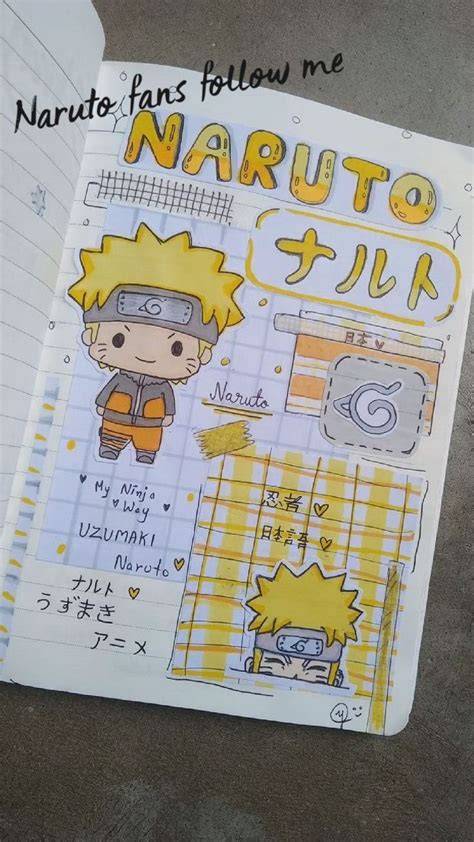 Naruto fans follow me
NARUTO
ナルト
日本
Naruto
My Ninja
Way
UZUMAKI
Naruto
ナルト
うずまき
アニメ
忍者
日本語